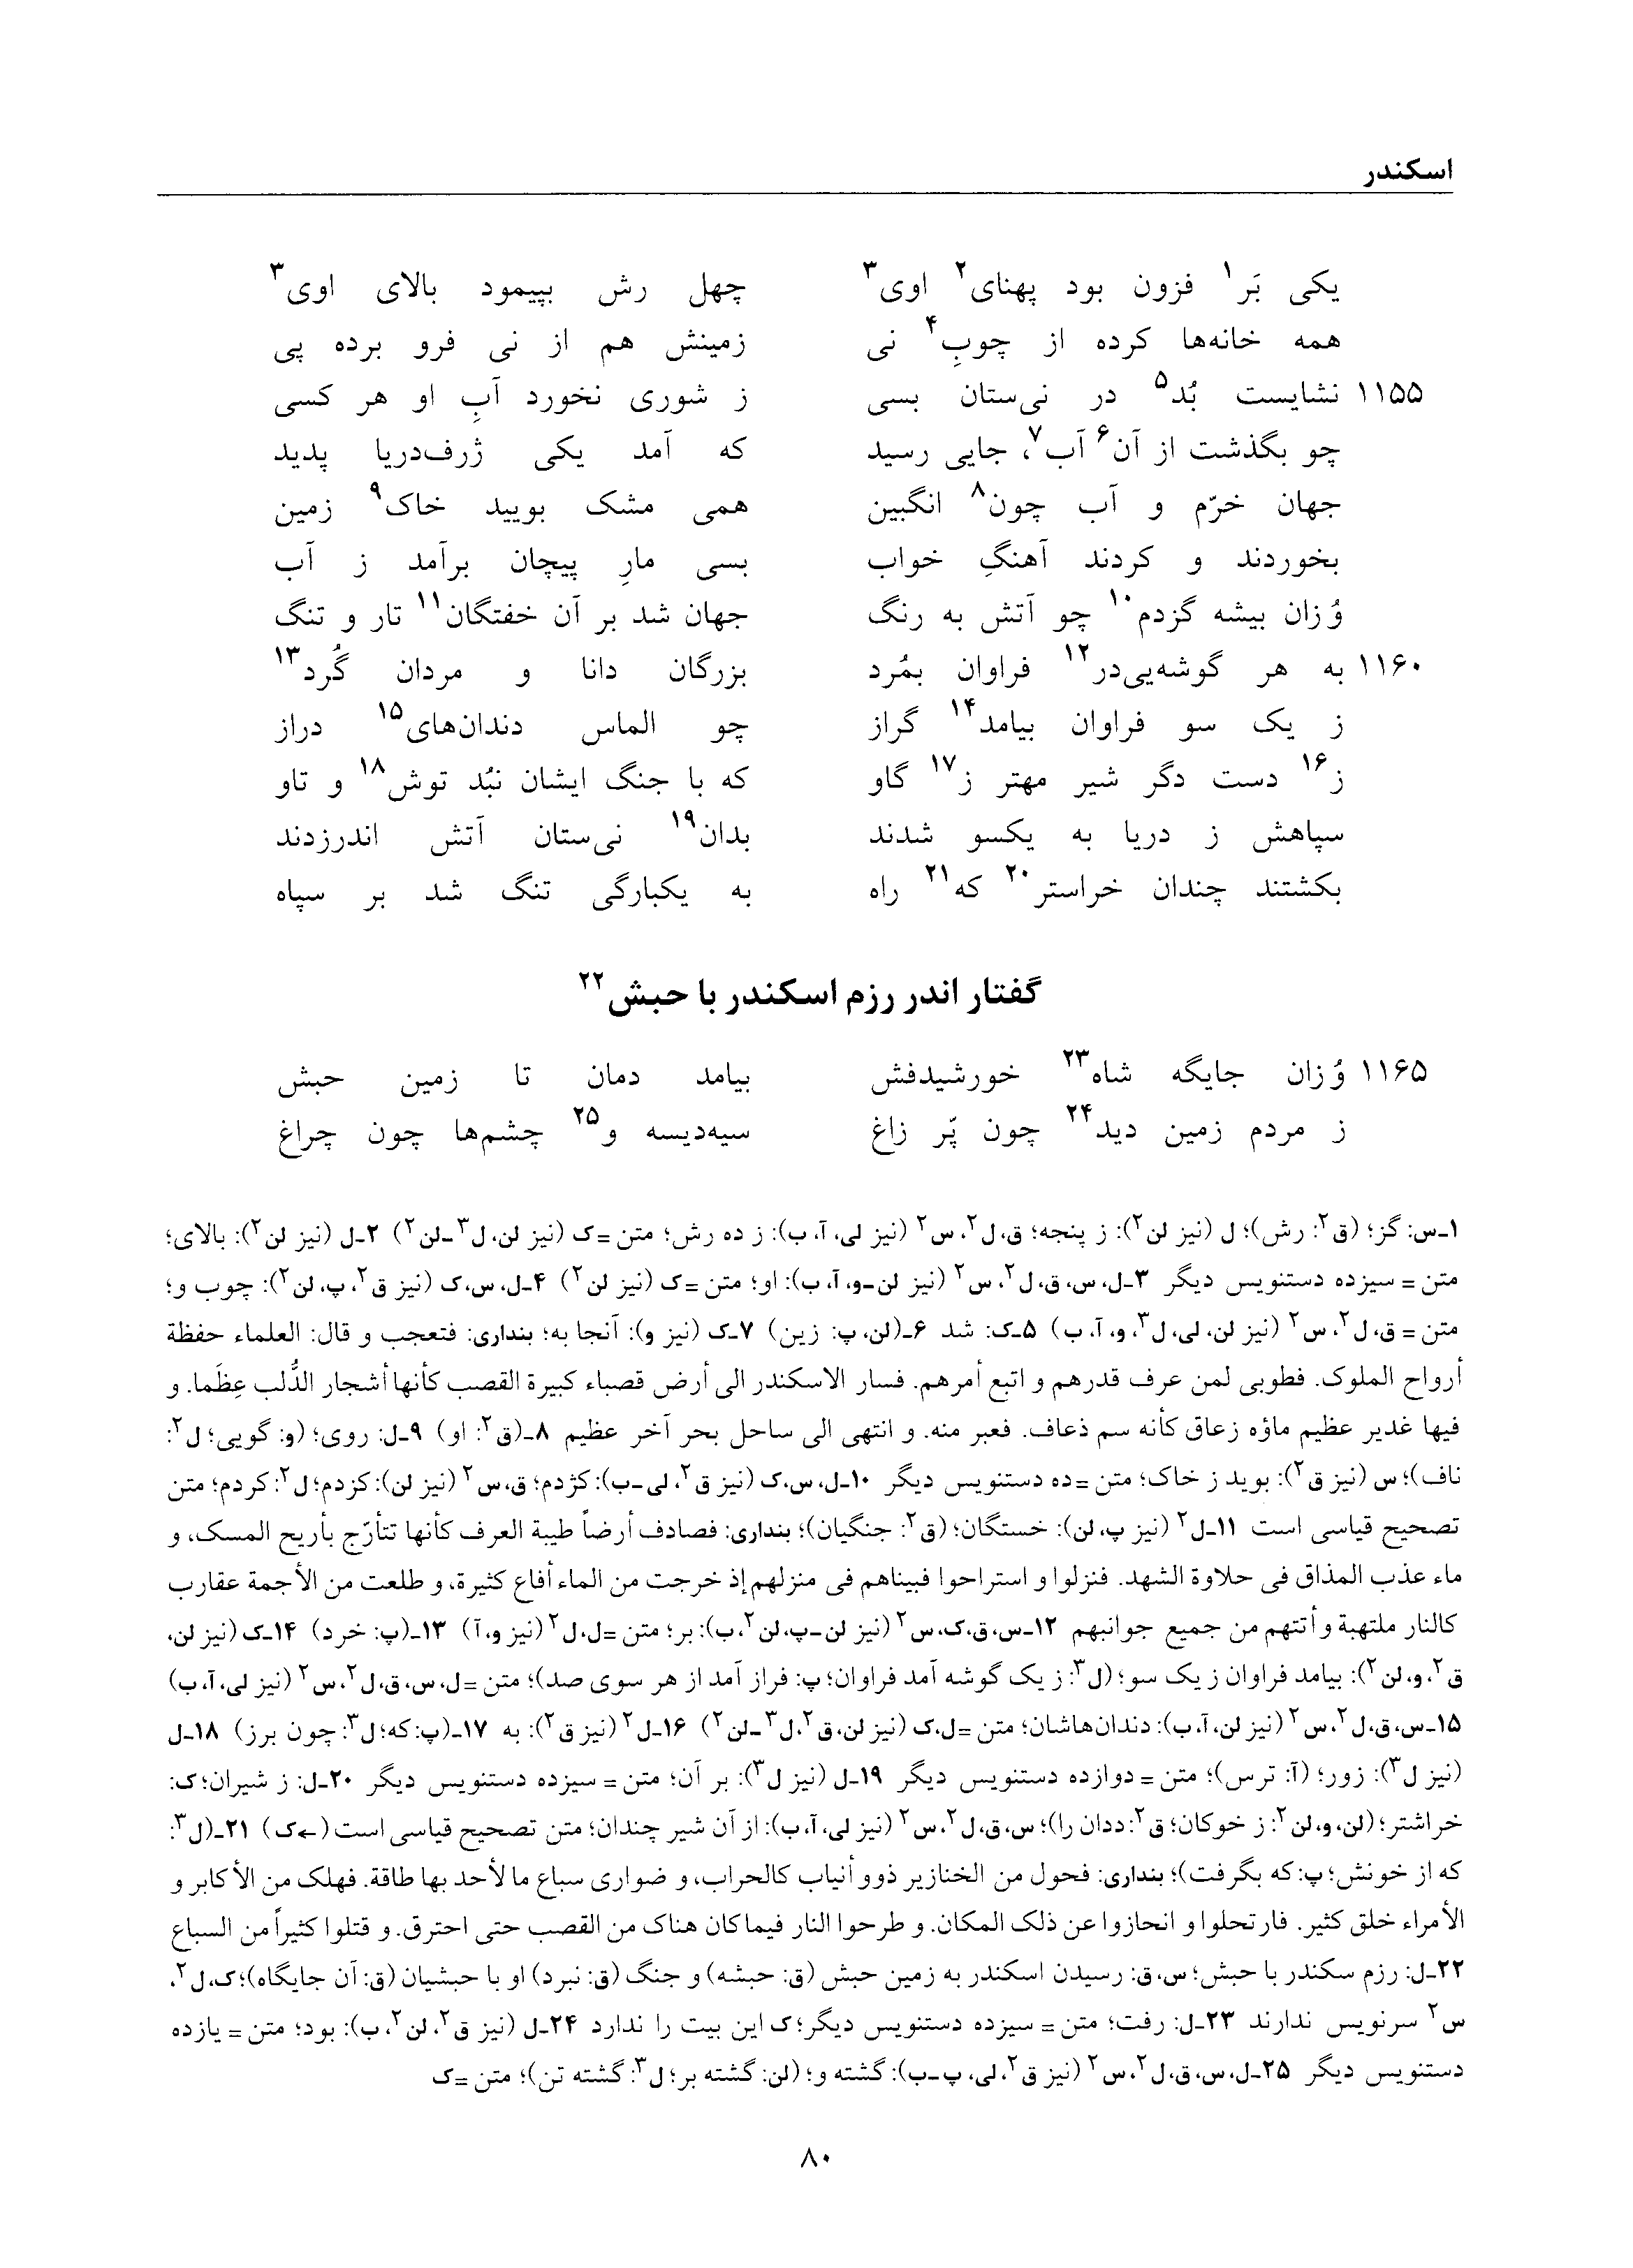 اسکندر
یکی بَر۱ فزون بود پهنای۲ اوی۳ چهل رش بپیمود بالای اوی۳
همه خانه‌ها کرده از چوبِ۴ نی زمینش هم از نی فرو برده پی
۱۱۵۵ نشایست بُد۵ در نی‌ستان بسی ز شوری نخورد آبِ او هر کسی
چو بگذشت از آن۶ آب۷، جایی رسید که آمد یکی ژرف‌دریا پدید
جهان خرّم و آب چون۸ انگبین همی مشک بویید خاک۹ زمین
بخوردند و کردند آهنگِ خواب بسی مارِ پیچان برآمد ز آب
وُزان بیشه گزدم۱۰ چو آتش به رنگ جهان شد بر آن خفتگان۱۱ تار و تنگ
۱۱۶۰ به هر گوشه‌یی‌در۱۲ فراوان بمُرد بزرگان دانا و مردان گُرد۱۳
ز یک سو فراوان بیامد۱۴ گراز چو الماس دندان‌های۱۵ دراز
ز۱۶ دست دگر شیر مهتر ز۱۷ گاو که با جنگ ایشان نبُد توش۱۸ و تاو
سپاهش ز دریا به یکسو شدند بدان۱۹ نی‌ستان آتش اندرزدند
بکشتند چندان خراستر۲۰ که۲۱ راه به یکبارگی تنگ شد بر سپاه
گفتار اندر رزم اسکندر با حبش۲۲
۱۱۶۵ وُزان جایگه شاه۲۳ خورشیدفش بیامد دمان تا زمین حبش
ز مردم زمین دید۲۴ چون پّر زاغ سیه‌دیسه و۲۵ چشم‌ها چون چراغ
۱ـ‌س: گز؛ (ق۲: رش)؛ ل (نیز لن۲): ز پنجه؛ ق، ل۲، س۲ (نیز لی، آ، ب): ز ده رش؛ متن =ک (نیز لن، ل۳ـ‌لن۲) ۲ـ‌ل (نیز لن۲): بالای؛
متن = سیزده دستنویس دیگر ۳ـ‌ل، س، ق، ل۲، س۲ (نیز لن‌ـ‌و، آ، ب): او؛ متن =ک (نیز لن۲) ۴ـ‌ل، س، ک (نیز ق۲، پ، لن۲): چوب و؛
متن = ق، ل۲، س۲ (نیز لن، لی، ل۳، و، آ، ب) ۵ـ‌ک: شد ۶ـ‌(لن، پ: زین) ۷ـ‌ک (نیز و): آنجا به؛ بنداری: فتعجب و قال: العلماء حفظة
أرواح الملوک. فطوبی لمن عرف قدرهم و اتبع أمرهم. فسار الاسکندر الی أرض قصباء کبیرة القصب کأنها أشجار الدُّلب عِظَما. و
فیها غدیر عظیم ماؤه زعاق کأنه سم ذعاف. فعبر منه. و انتهی الی ساحل بحر آخر عظیم ۸ـ‌(ق۲: او) ۹ـ‌ل: روی؛ (و: گویی؛ ل۲:
ناف)؛ س (نیز ق۲): بوید ز خاک؛ متن =ده دستنویس دیگر ۱۰ـ‌ل، س، ک (نیز ق۲، لی‌ـ‌ب): کژدم؛ ق، س۲ (نیز لن): کزدم؛ ل۲: کردم؛ متن
تصحیح قیاسی است ۱۱ـ‌ل۲ (نیز پ، لن): خستگان؛ (ق۲: جنگیان)؛ بنداری: فصادف أرضاً طیبة العرف کأنها تتأرّج بأریح المسک، و
ماء عذب المذاق فی حلاوة الشهد. فنزلوا و استراحوا فبیناهم فی منزلهم إذ خرجت من الماء أفاع کثیرة، و طلعت من الأجمة عقارب
کالنار ملتهبة و أتتهم من جمیع جوانبهم ۱۲ـ‌س، ق، ک، س۲ (نیز لن‌ـ‌پ، لن۲، ب): بر؛ متن =ل، ل۲ (نیز و، آ) ۱۳ـ‌(پ: خرد) ۱۴ـ‌ک (نیز لن،
ق۲، و، لن۲): بیامد فراوان ز یک سو؛ (ل۳: ز یک گوشه آمد فراوان؛ پ: فراز آمد از هر سوی صد)؛ متن =ل، س، ق، ل۲، س۲ (نیز لی، آ، ب)
۱۵ـ‌س، ق، ل۲، س۲ (نیز لن، آ، ب): دندان‌هاشان؛ متن =ل، ک (نیز لن، ق۲، ل۳ـ‌لن۲) ۱۶ـ‌ل۲ (نیز ق۲): به ۱۷ـ‌(پ: که؛ ل۳: چون برز) ۱۸ـ‌ل
(نیز ل۳): زور؛ (آ: ترس)؛ متن = دوازده دستنویس دیگر ۱۹ـ‌ل (نیز ل۳): بر آن؛ متن = سیزده دستنویس دیگر ۲۰ـ‌ل: ز شیران؛ ک:
خراشتر؛ (لن، و، لن۲: ز خوکان؛ ق۲: ددان را)؛ س، ق، ل۲، س۲ (نیز لی، آ، ب): از آن شیر چندان؛ متن تصحیح قیاسی است (←ک) ۲۱ـ‌(ل۳:
که از خونش؛ پ: که بگرفت)؛ بنداری: فحول من الخنازیر ذوو أنیاب کالحراب، و ضواری سباع ما لأحد بها طاقة. فهلک من الأکابر و
الأمراء خلق کثیر. فارتحلوا و انحازوا عن ذلک المکان. و طرحوا النار فیما کان هناک من القصب حتی احترق. و قتلوا کثیراً من السباع
۲۲ـ‌ل: رزم سکندر با حبش؛ س، ق: رسیدن اسکندر به زمین حبش (ق: حبشه) و جنگ (ق: نبرد) او با حبشیان (ق: آن جایگاه)؛ ک، ل۲،
س۲ سرنویس ندارند ۲۳ـ‌ل: رفت؛ متن = سیزده دستنویس دیگر؛ ک این بیت را ندارد ۲۴ـ‌ل (نیز ق۲، لن۲، ب): بود؛ متن = یازده
دستنویس دیگر ۲۵ـ‌ل، س، ق، ل۲، س۲ (نیز ق۲، لی، پ‌ـ‌ب): گشته و؛ (لن: گشته بر؛ ل۳: گشته تن)؛ متن =ک
۸۰